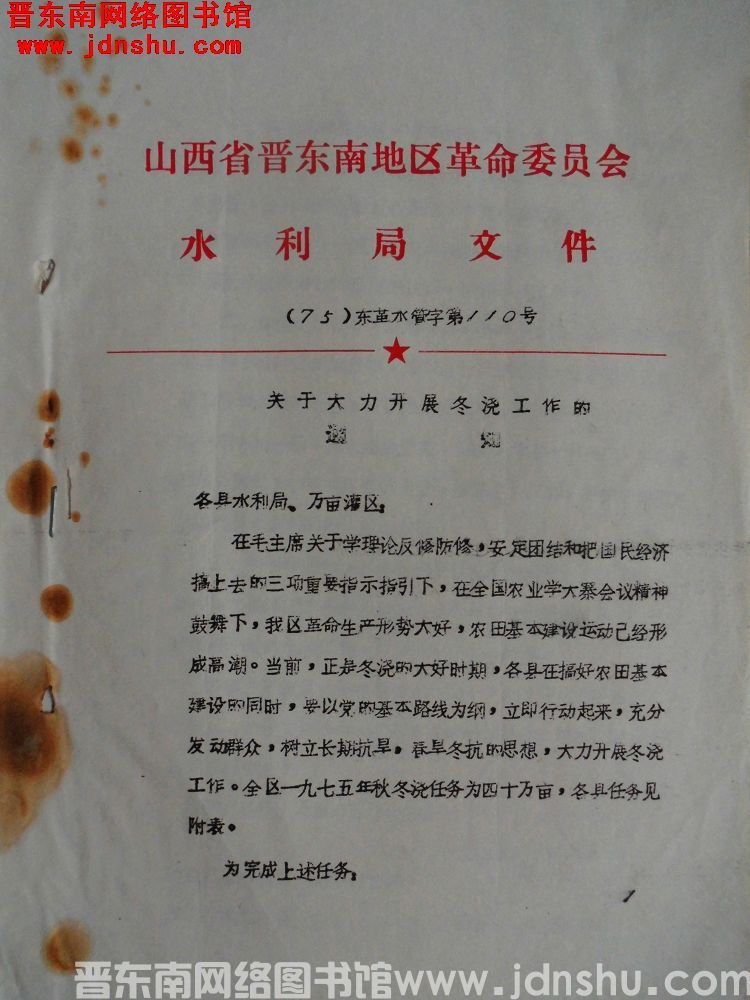 晋东南网络图书馆
www.jdnshu.com
山西省晋东南地区革命委员会
水利局文件
(75)东革水管字第110号
关于大力开展冬浇工作的
通知
各县水利局、万亩灌区:
在毛主席关于学理论反修防修,安定团结和把国民经济
搞上去的三项重要指示指引下,在全国农业学大寨会议精神
鼓舞下,我区革命生产形势大好,农田基本建设运动已经形
成高潮。当前,正是冬浇的大好时期,各县在搞好农田基本
建设的同时,要以党的基本路线为纲,立即行动起来,充分
发动群众,树立长期抗旱,春旱冬抗的思想,大力开展冬浇
工作。全区一九七五年秋冬浇任务为四十万亩,各县任务见
附表。
为完成上述任务:
1
晋东南网络图书馆www.jdnshu.com